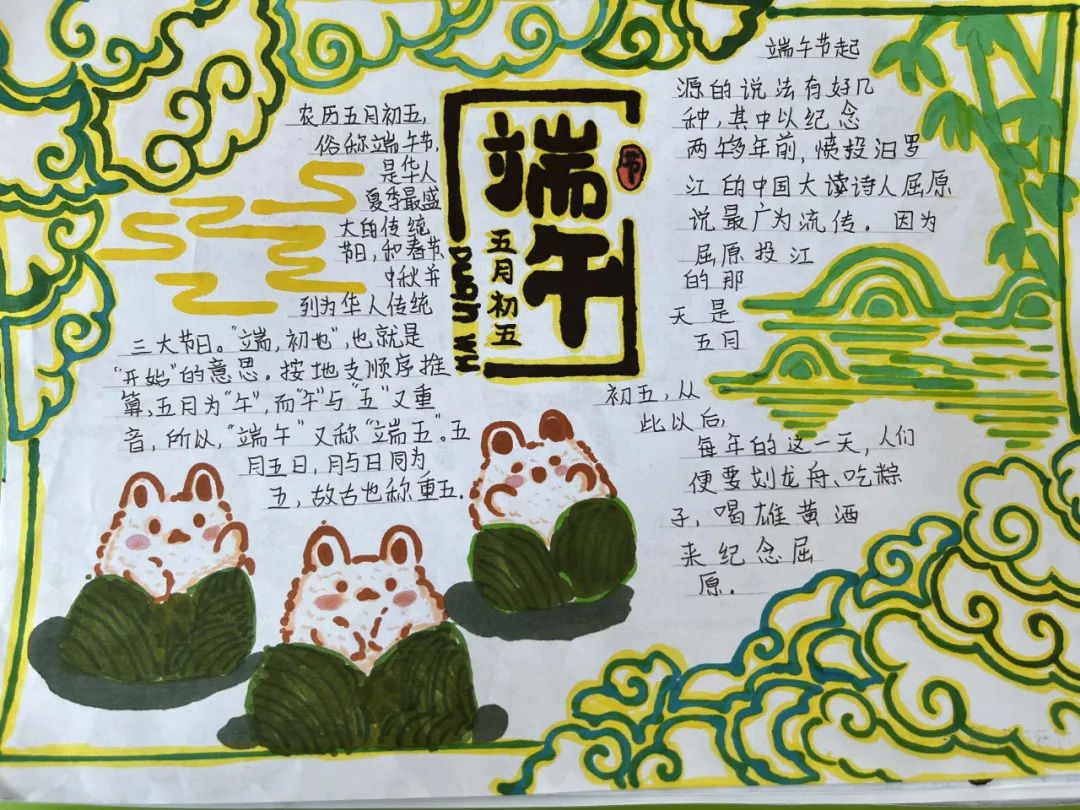 农历五月初五,
俗称端午节,
是华人
夏季最盛
大的传统
节日,和春节、
中秋并
列为华人传统
三大节日。“端,初也”,也就是
“开始”的意思。按地支顺序推
算,五月为“午”,而“午”与“五”又重
音,所以,“端午”又称“端五”。五
月五日,月与日同为
五,故古也称重五.
端午
节
五月初五
DUAN WU
端午节起
源的说法有好几
种,其中以纪念
两千多年前,愤投汨罗
江的中国大读诗人屈原
说最广为流传。因为
屈原投江
的那
天是
五月
初五,从
此以后,
每年的这一天,人们
便要划龙舟、吃粽
子,喝雄黄酒
来纪念屈
原.